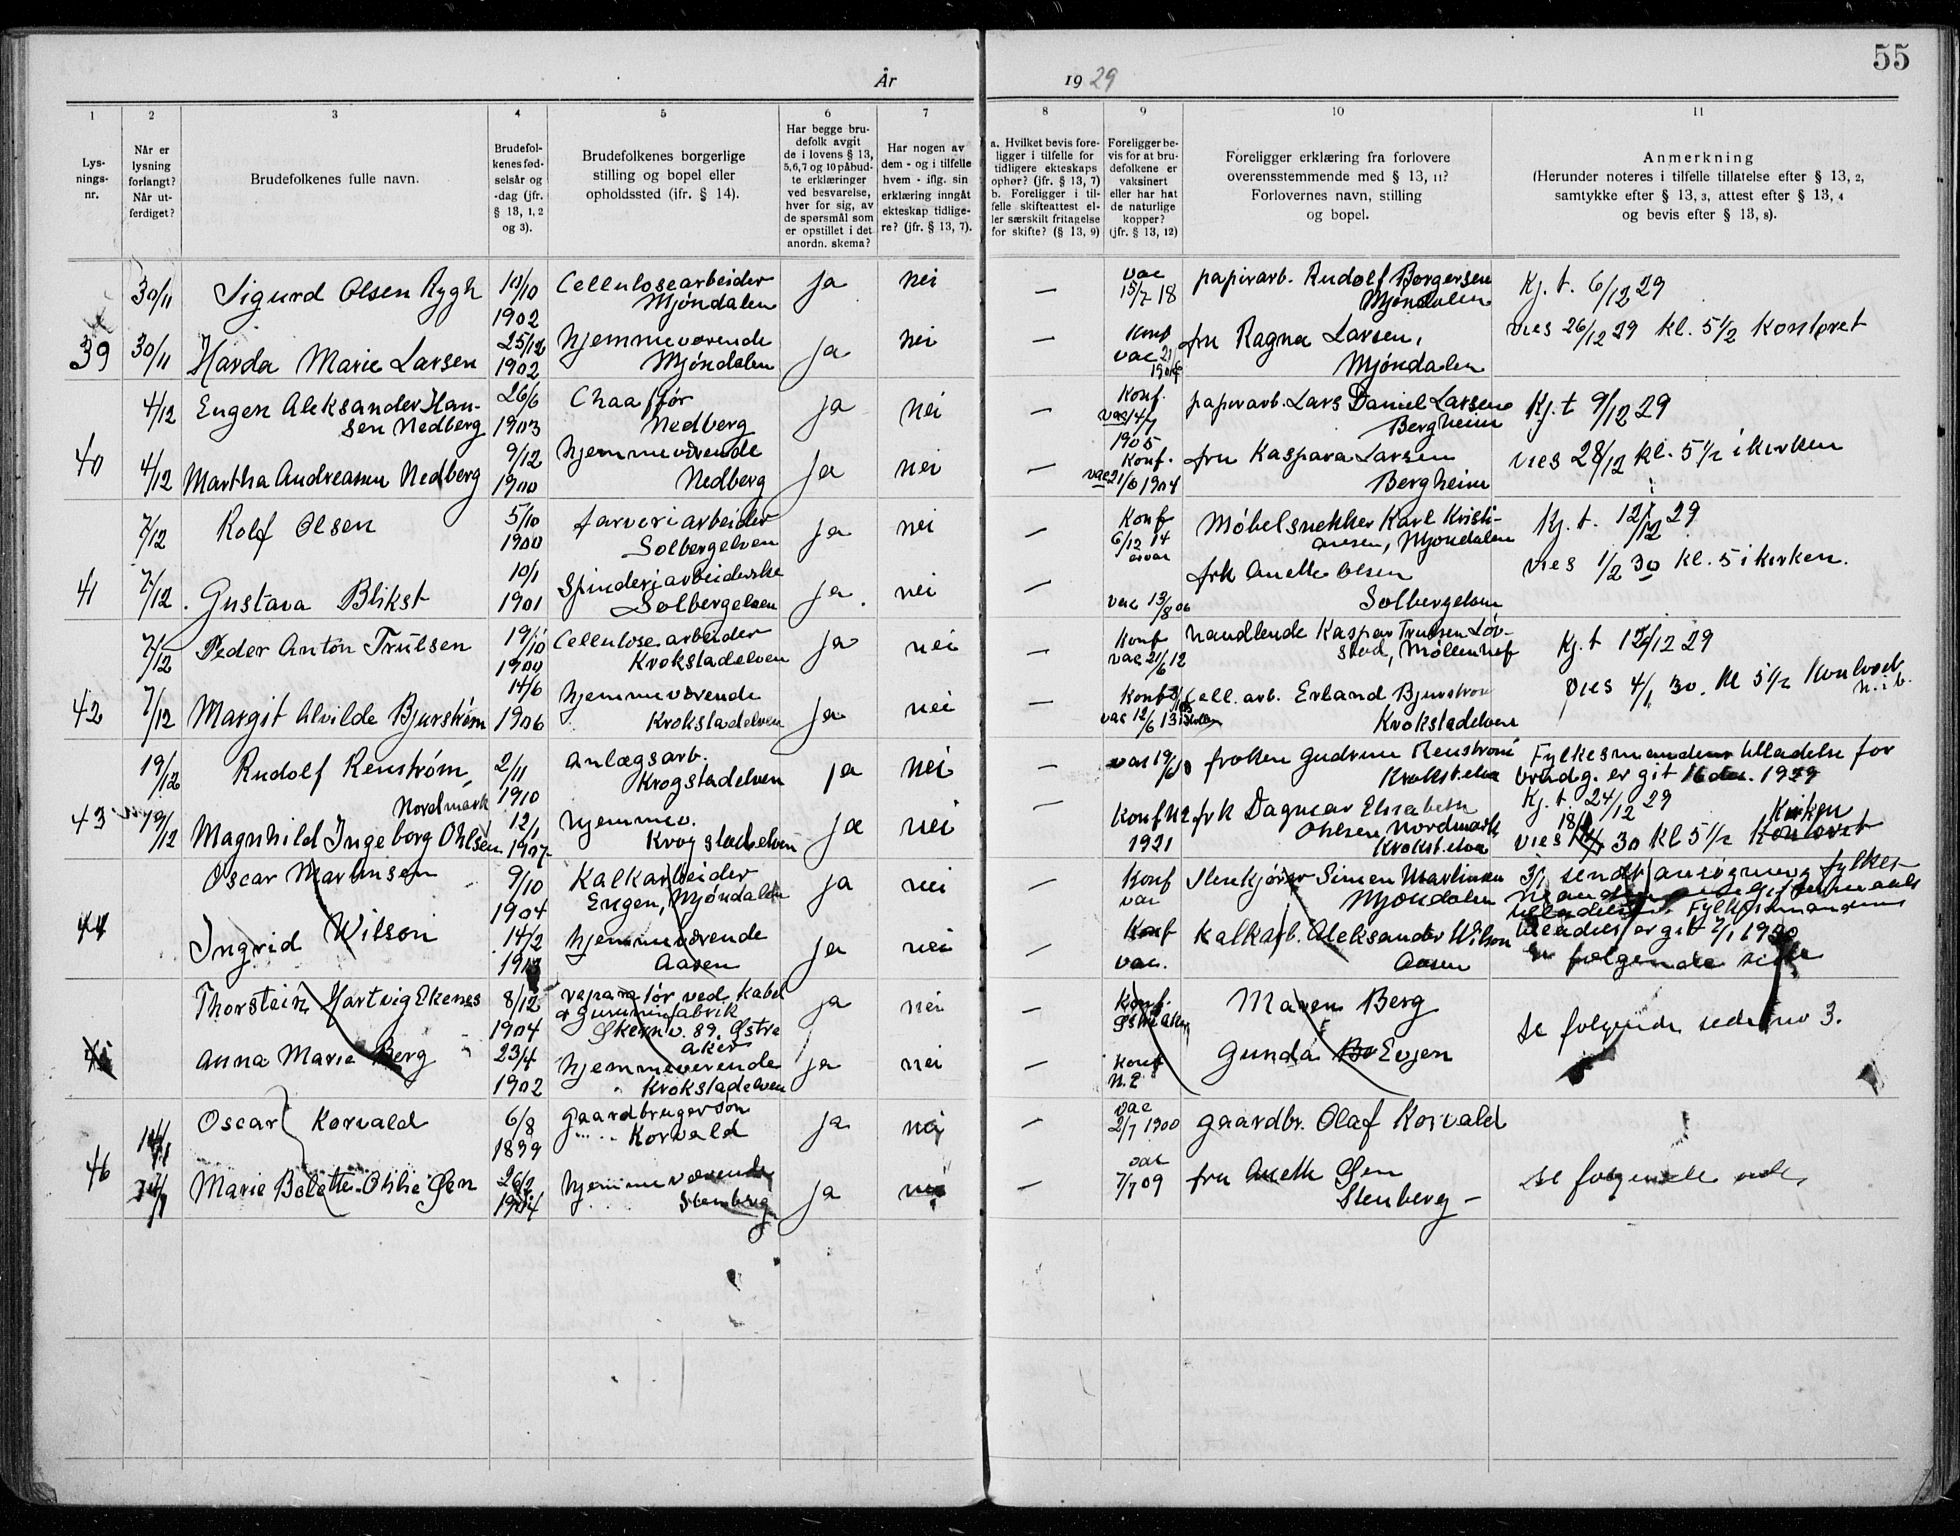 55
År 1929
1 2 3 4 5 6 7 8 9 10 11
Lys-
nings-
nr.
Når er
lysning
forlangt?
Når ut-
ferdiget?
Brudefolkenes fulle navn.
Brudefol-
kenes fød-
selsår og
-dag (jfr.
§ 13, 1, 2
og 3).
Brudefolkenes borgerlige
stilling og bopel eller
opholdssted (jfr. § 14).
Har begge bru-
defolk avgit
de i lovens § 13,
5,6,7 og 10 påbud-
te erklæringer
ved besvarelse,
hver for sig, av
de spørsmål som
er opstillet i det
anordn. skema?
Har nogen av
dem - og i tilfelle
hvem - iflg. sin
erklæring inngåt
ekteskap tidlige-
re? (jfr. § 13, 7).
a. Hvilket bevis fore-
ligger i tilfelle for
tidligere ekteskaps
ophør? (jfr. § 13, 7)
b. Foreligger i til-
felle skifteattest el-
ler særskilt fritagelse
for skifte? (§ 13, 9)
Foreligger be-
vis for at bru-
defolkene er
vaksinert
eller har hat
de naturlige
kopper?
(jfr. § 13, 12)
Foreligger erklæring fra forlovere
overensstemmende med § 13, 11?
Forlovernes navn, stilling
og bopel.
Anmerkning
(Herunder noteres i tilfelle tillatelse efter § 13, 2,
samtykke efter § 13, 3, attest efter § 13, 4
og bevis efter § 13, 8).
39
30/11 Sigurd Olsen Rygh 10/10 1902 Cellulosearbeider
Mjøndalen ja nei — vac 15/7 18 papirarb. Rudolf Borgersen
Mjøndalen Kj. t. 6/12 29
30/11 Harda Marie Larsen 25/12 1902 hjemmeværende
Mjøndalen ja nei — Konf vac 21/ fru Ragna Larsen,
Mjøndalen vies 26/12 29 kl. 5 1/2 Kontoret
40
4/12 Eugen Aleksander Han-
sen Nedberg 26/6 1903 Chaaffør
Nedberg ja nei — Konf. vac 14/7 1905 papirarb. Lars Daniel Larsen
Bergheim Kj. t 9/12 29
4/12 Martha Andreassen Nedberg 9/12 1900 hjemmeværende
Nedberg ja nei — Konf. vac 21/6 1904 fru Kaspara Larsen
Bergheim vies 28/12 kl. 5 1/2 i kirken
41
7/12 Rolf Olsen 5/10 1900 farveriarbeider
Solbergelven ja nei — Konf 6/12 14 Møbelsnekker Karl Kristi-
ansen, Mjøndalen Kj. t. 12/12 29
7/12 Gustava Blikst 10/1 1901 Spinderiarbeiderske
Solbergelven ja nei — vac 13/8 06 frk Anette Olsen
Solbergelven vies 1/2 30 kl. 5 i kirken.
42
7/12 Peder Anton Trulsen 19/10 1900 Cellulosearbeider
Krokstadelven ja nei — Konf vac 21/6 12 handlende Kaspar Trulsen Løv-
stad, Kj. t 12/12 29
7/12 Margit Alvilde Bjurstrøm 14/6 1906 hjemmeværende
Krokstadelven ja nei — Konf vac 12/6 13 cell. arb. Erland Bjurstrøm
Krokstadelven vies 4/1 30. kl 5 1/2 Kontoret
43
19/12 Rudolf Renstrøm, 2/11 1910 anlægsarb.
Krogstadelven ja nei — vac 19/6 frøken Gudrun Renstrøm
Krokst.elva Fylkesmandens tilladelse for
brudg. er git 16 des. 1929
19/12 Nordmark
Magnhild Ingeborg Ohlsen 12/1 1907 hjemmev.
Krogstadelven ja nei — Konf 1921 frk Dagmar Elisabeth
Ohlsen Nordmark
Krokst.elva Kj. t. 24/12 29
Kirken
vies 18/1 30 kl 5 1/2 Kontoret
44
Oscar Martinsen 9/10 1904 Kalkarbeider
Engen, Mjøndalen ja nei Konf vac Simen Martinsen
Mjøndalen 3/1 sendt ansøgning fylkes-
Fylkesmandens
tilladelse er git 7/1 1930
Ingrid Wilson 14/2 hjemmeværende
Aasen ja nei — Konf vac. Kalkarb. Aleksander Wilson
Aasen følgende side
45
Thorstein Hartvig Ekenes 8/12 1904 reparatør ved Kabel
& gummifabrik
89. Østre
Aker ja nei — Konf. Østre Aker Maren Berg
Se følgende side no 3.
Anna Marie Berg 23/4 1902 hjemmeværende
Krokstadelven ja nei — Konf N.E Gunda Evjen
46
Oscar Korvald 6/8 1899 gaardbrugersøn
Korvald ja nei — vac 2/7 1900 gaardbr. Olaf Korvald
Marie Bolette Øen 26/2 1904 hjemmeværende
Stenberg ja nei — vac 7/7 09 fru Aneth Øen
Stenberg — se følgende side